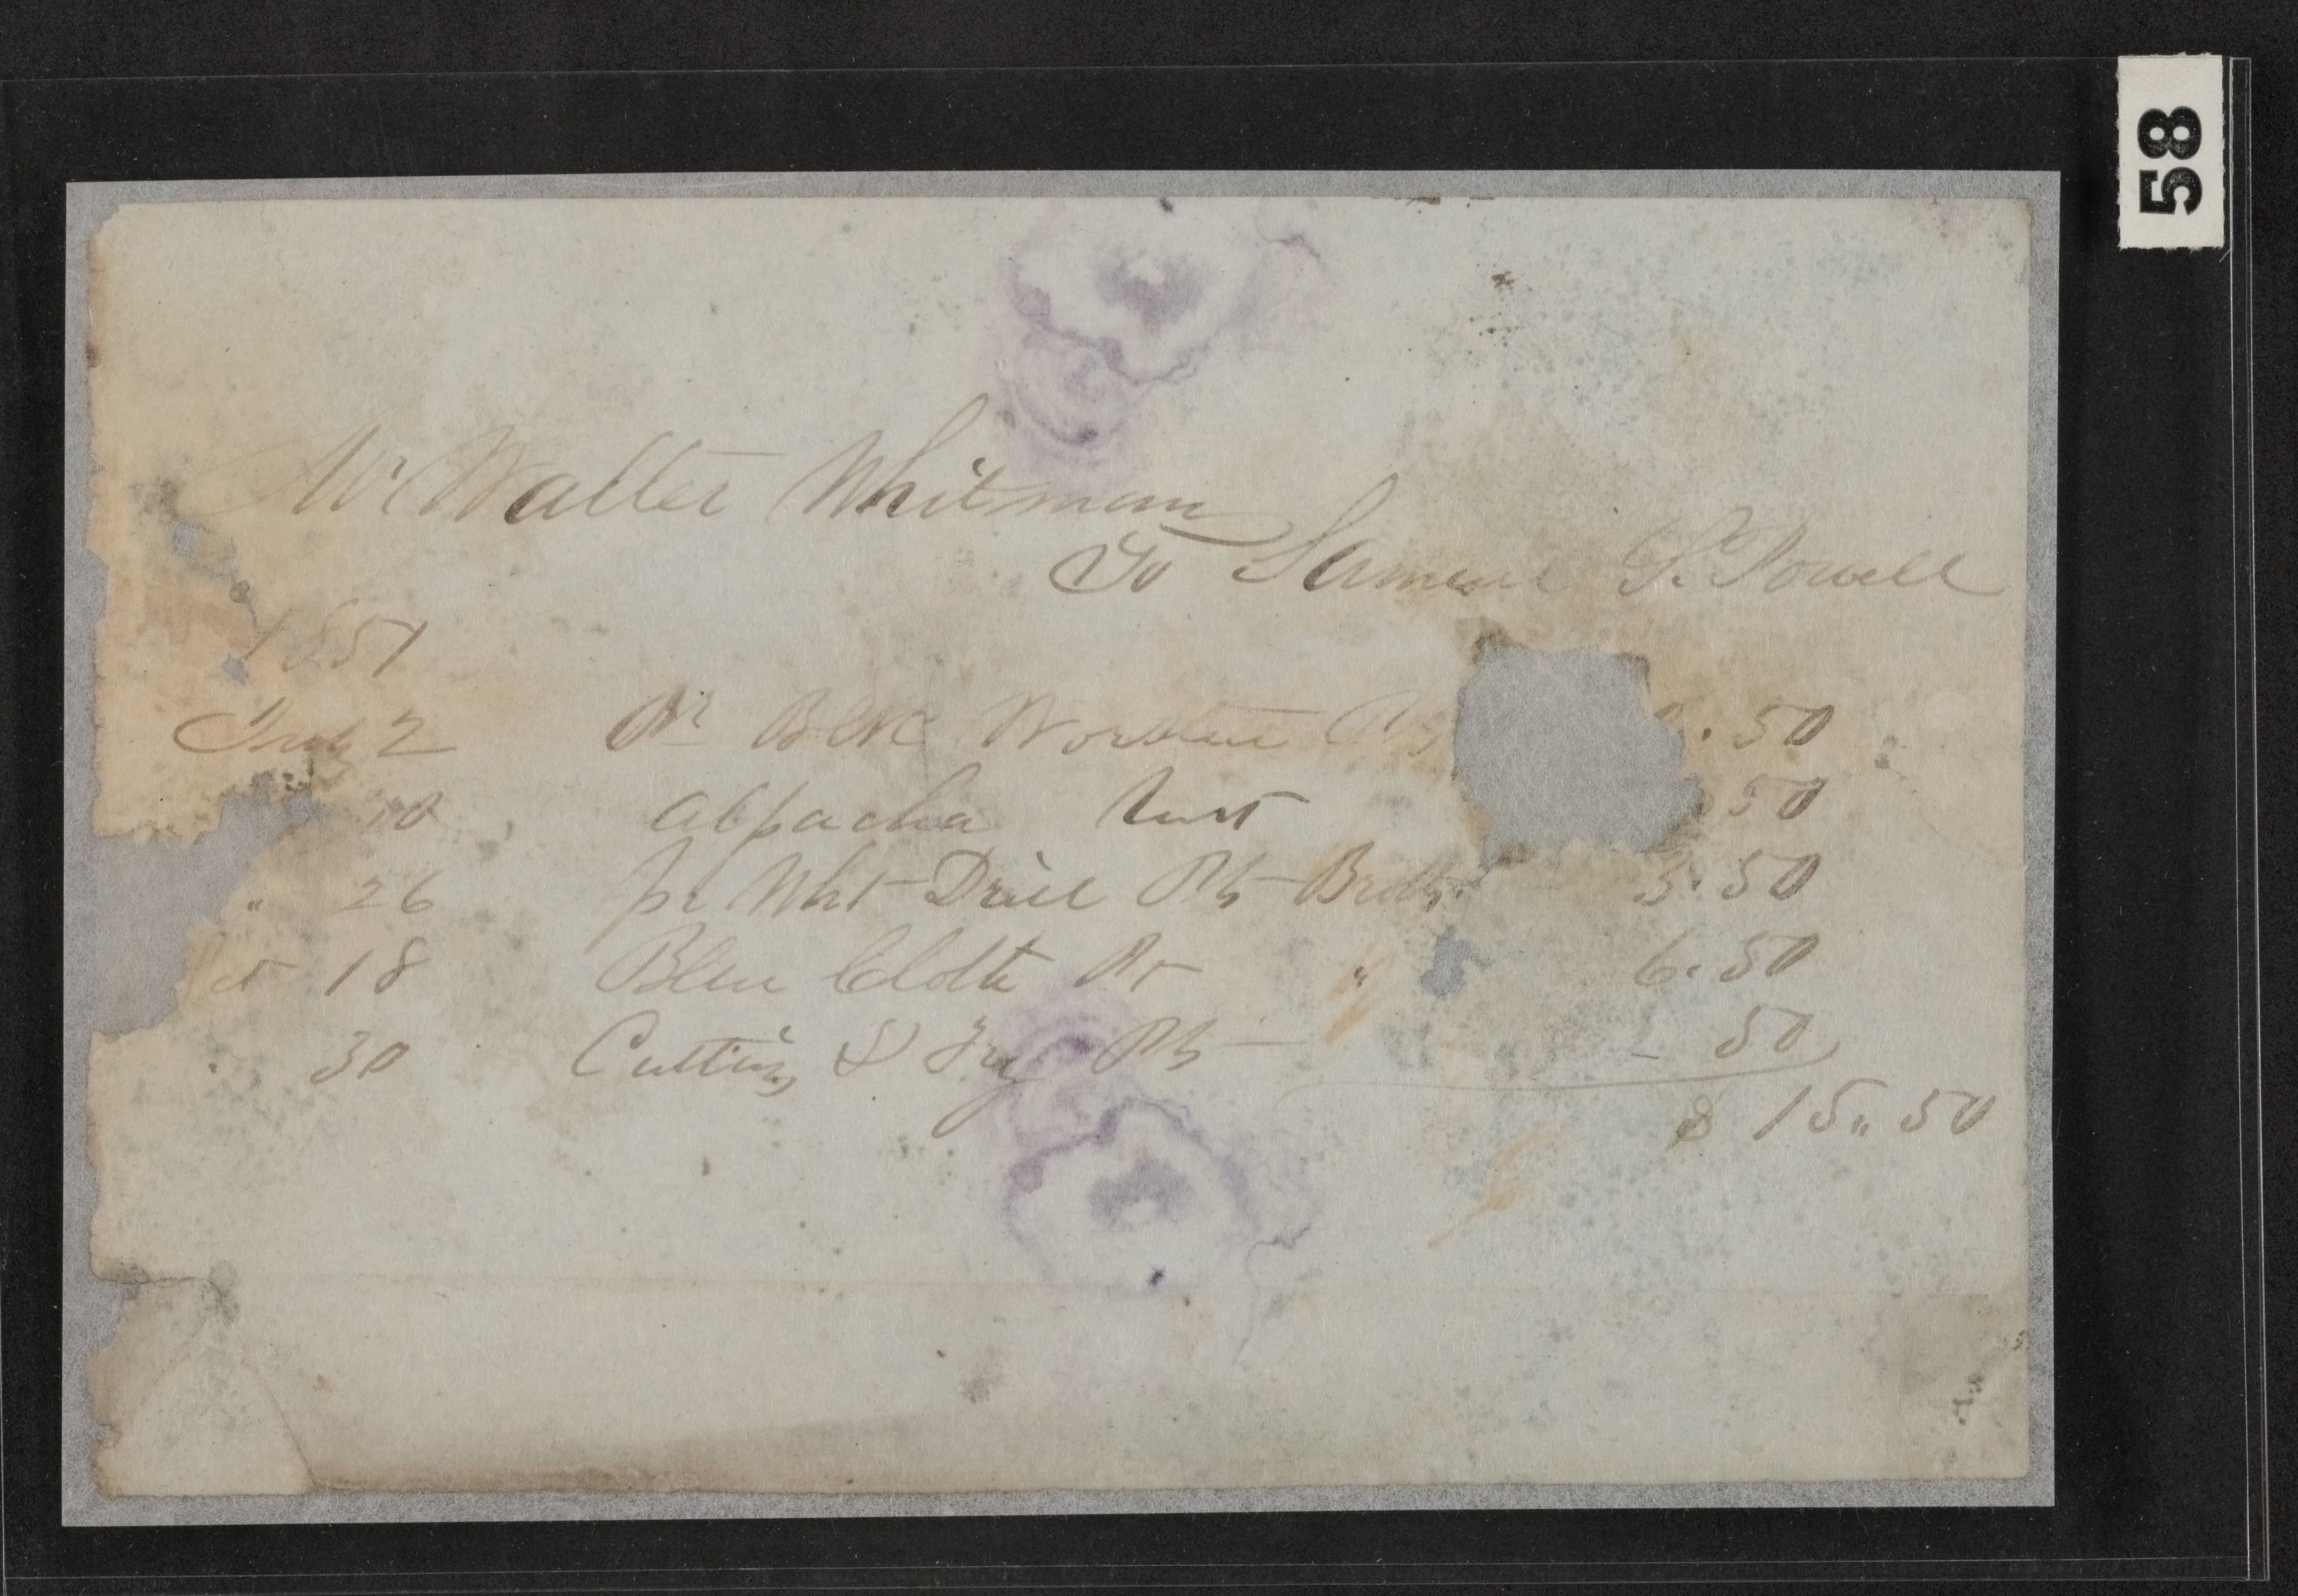 58
Mr Walter Whitman
To Samuel S. Powell
1851
July 2 Pr Blk Worsted Pts . 50
10 Alpacha 50
" 26 pr Wht Drill Pts Broths 3.50
18 Blue Cloth Pr " 6.50
" 30 Cutting & Pts — 50
$ 15.. 50